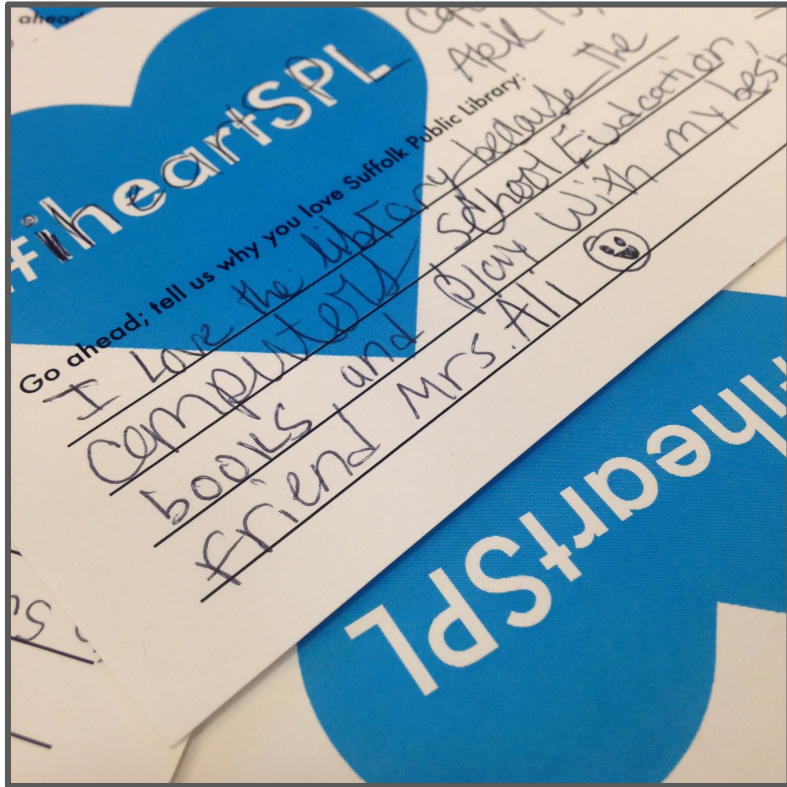 ahead
#iheartSPL
April
Go ahead; tell us why you love Suffolk Public Library:
I Love the library because The
Computers, School Eudcation
books, and Play With my best
friend Mrs. Ali
#iheartSPL